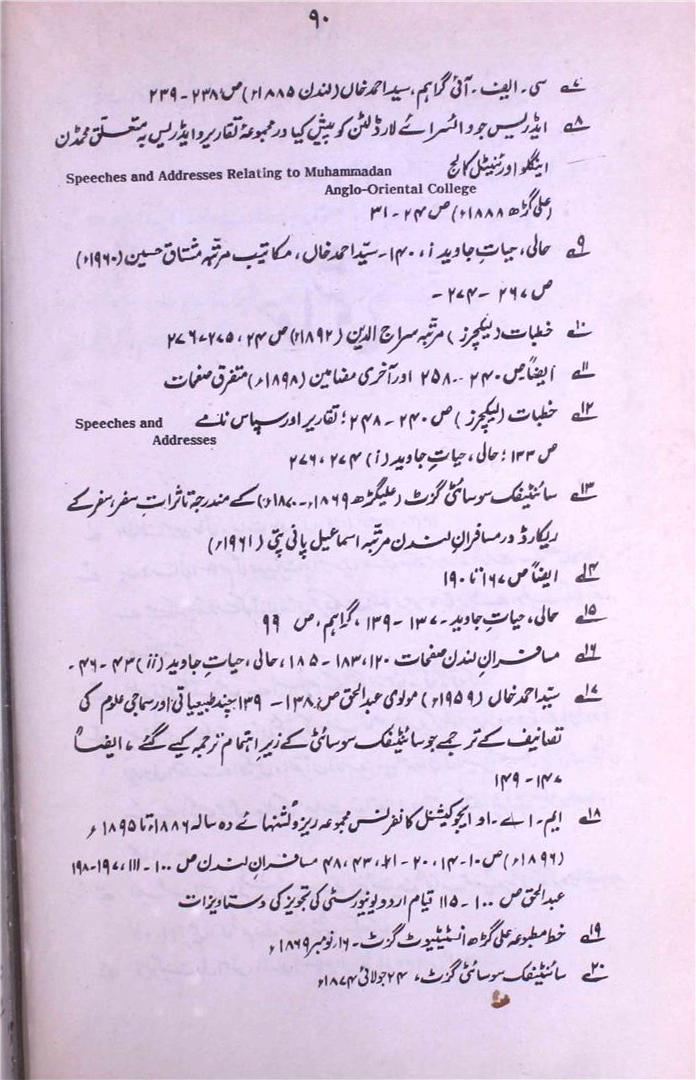 ۹۰
۷ سی۔ ایف۔ آئی گراہم، سید احمد خاں (لندن ۱۸۸۵ء) ص ۲۳۸۔ ۲۳۹
۸ ایڈریس جو وائسرائے لارڈ لٹن کو پیش کیا در مجموعۂ تقاریر و ایڈریس بہ متعلق محمڈن
اینگلو اورئنیٹل کالج Speeches and Addresses Relating to Muhammadan
Anglo-Oriental College
(علی گڑھ ۱۸۸۸ء) ص ۲۴۔ ۳۱
۹ حالی، حیاتِ جاوید i، ۱۴۰۔ سیّد احمد خاں، مکاتیب مرتبہ مشتاق حسین (۱۹۶۰ء)
ص ۲۶۷ ۔ ۲۷۴ ۔
۱۰ خطبات (لیکچرز) مرتبہ سراج الدین (۱۸۹۲ء) ص ۲۴، ۲۷۵، ۲۷۶
۱۱ ایضاً ص ۲۴۰ ۔ ۲۵۸ اور آخری مضامین (۱۸۹۸ء) متفرق صفحات
۱۲ خطبات (لیکچرز) ص ۲۴۰ ۔ ۲۴۸؛ تقاریر اور سپاس نامے Speeches and
Addresses
ص ۱۳۳؛ حالی، حیاتِ جاوید (i) ۲۷۴، ۲۷۶
۱۳ سائنٹیفک سوسائٹی گزٹ (علیگڑھ ۱۸۶۹ء۔ ۱۸۷۰ء) کے مندرجہ تاثرات سفر، سفر کے
ریکارڈ در مسافرانِ لندن مرتبہ اسماعیل پانی پتی (۱۹۶۱ء)
۱۴ ایضاً ص ۱۶۷ تا ۱۹۰
۱۵ حالی، حیاتِ جاوید۔ ۱۳۷ ۔ ۱۳۹، گراہم، ص ۹۹
۱۶ مسافرانِ لندن صفحات ۱۲۰، ۱۸۳ ۔ ۱۸۵، حالی، حیاتِ جاوید (ii) ۴۳ ۔ ۴۶ ۔
۱۷ سیّد احمد خاں (۱۹۵۹ء) مولوی عبد الحق ص ۱۳۸ ۔ ۱۳۹ چند طبیعیاتی اور سماجی علوم کی
تصانیف کے ترجمے جو سائنٹیفک سوسائٹی کے زیرِ اہتمام ترجمہ کیے گئے، ایضاً
۱۴۷ ۔ ۱۴۹
۱۸ ایم۔ اے۔ او ایجوکیشنل کانفرنس مجموعہ ریزولشنہائے دہ سالہ ۱۸۸۶ء تا ۱۸۹۵ء
(۱۸۹۶ء) ص ۱۰۔ ۱۴، ۲۰ ۔ ۲۱، ۴۳، ۴۸ مسافرانِ لندن ص ۱۰۰ ۔ ۱۱۱، ۱۹۷۔ ۱۹۸
عبد الحق ص ۱۰۰ ۔ ۱۱۵ قیام اردو یونیورسٹی کی تجویز کی دستاویزات
۱۹ خط مطبوعہ علی گڑھ انسٹیٹیوٹ گزٹ۔ ۱۶ نومبر ۱۸۶۹ء
۲۰ سائنٹیفک سوسائٹی گزٹ، ۲۴ جولائی ۱۸۷۴ء